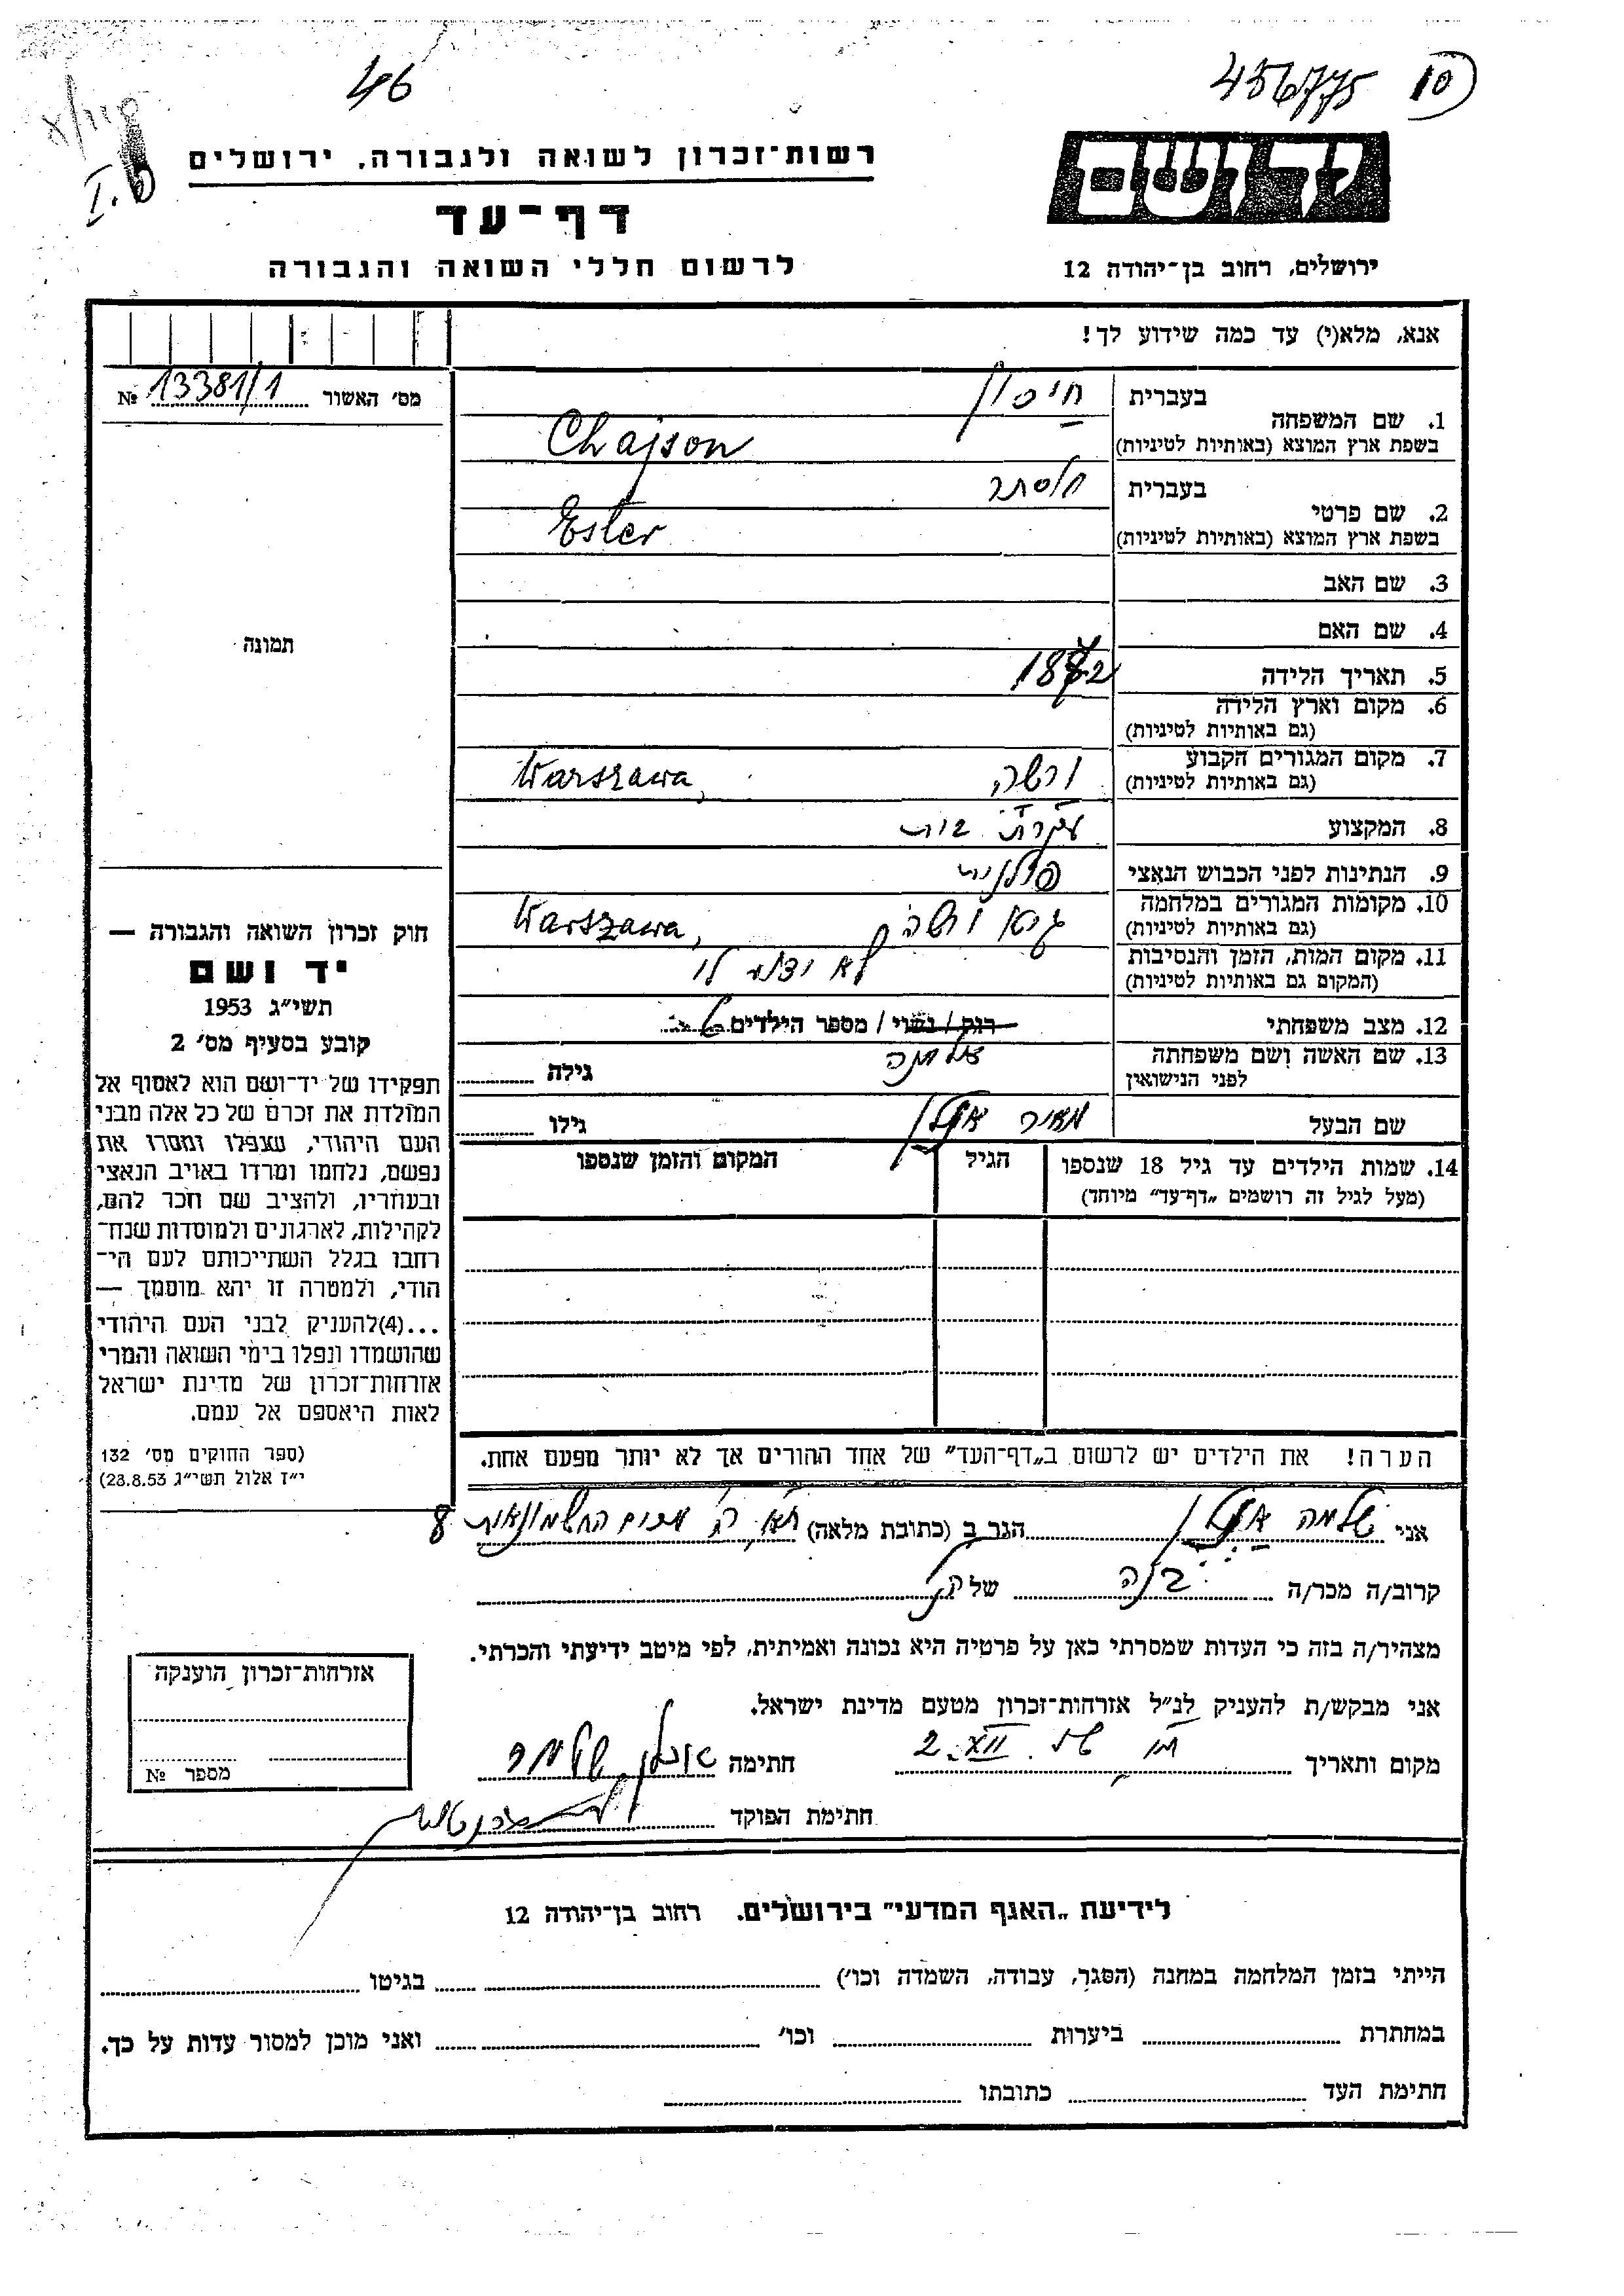 46
456775
10
I.
רשות־זכרון לשואה ולגבורה, ירושלים
דף־עד
לרשום חללי השואה והגבורה
ידושם
ירושלים, רחוב בן־יהודה 12
אנא, מלא(י) עד כמה שידוע לך!
מס׳ האשור 13381/1 №
תמונה
1. שם המשפחה
בעברית חיסון
בשפת ארץ המוצא (באותיות לטיניות) Chajson
2. שם פרטי
בעברית אסתר
בשפת ארץ המוצא (באותיות לטיניות) Ester
3. שם האב
4. שם האם
5. תאריך הלידה 1872
6. מקום וארץ הלידה
(גם באותיות לטיניות)
7. מקום המגורים הקבוע ורשה, Warszawa
(גם באותיות לטיניות)
8. המקצוע עקרת בית
9. הנתינות לפני הכבוש הנאצי פולנית
10. מקומות המגורים במלחמה גיטו ורשה, Warszawa
(גם באותיות לטיניות)
11. מקום המות, הזמן והנסיבות לא ידוע לי
(המקום גם באותיות לטיניות)
12. מצב משפחתי רוק / נשוי / מספר הילדים
13. שם האשה ושם משפחתה אלמנה גילה
לפני הנישואין
שם הבעל מאיר גילו
14. שמות הילדים עד גיל 18 שנספו הגיל המקום והזמן שנספו
(מעל לגיל זה רושמים „דף־עד״ מיוחד)
הערה! את הילדים יש לרשום ב„דף־העד״ של אחד ההורים אך לא יותר מפעם אחת.
חוק זכרון השואה והגבורה —
יד ושם
תשי״ג 1953
קובע בסעיף מס׳ 2
תפקידו של יד־ושם הוא לאסוף אל
המולדת את זכרם של כל אלה מבני
העם היהודי, שנפלו ומסרו את
נפשם, נלחמו ומרדו באויב הנאצי
ובעוזריו, ולהציב שם וזכר להם,
לקהילות, לארגונים ולמוסדות שנח־
רבו בגלל השתייכותם לעם הי־
הודי, ולמטרה זו יהא מוסמך —
...(4)להעניק לבני העם היהודי
שהושמדו ונפלו בימי השואה והמרי
אזרחות־זכרון של מדינת ישראל
לאות היאספם אל עמם.
(ספר החוקים מס׳ 132
י״ז אלול תשי״ג 28.8.53)
אני שלמה הגר ב (כתובת מלאה) ת״א החשמונאים 8
קרוב/ה מכר/ה בנה של
מצהיר/ה בזה כי העדות שמסרתי כאן על פרטיה היא נכונה ואמיתית, לפי מיטב ידיעתי והכרתי.
אני מבקש/ת להעניק לנ״ל אזרחות־זכרון מטעם מדינת ישראל.
מקום ותאריך 2.XII חתימה שלמה
חתימת הפוקד
אזרחות־זכרון הוענקה
מספר №
לידיעת „האגף המדעי״ בירושלים, רחוב בן־יהודה 12
הייתי בזמן המלחמה במחנה (הסגר, עבודה, השמדה וכו׳) בגיטו
במחתרת ביערות וכו׳ ואני מוכן למסור עדות על כך.
חתימת העד כתובתו